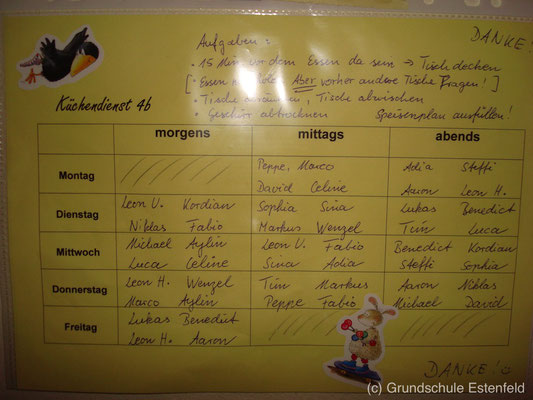 DANKE!
Aufgaben:
• 15 Min vor dem Essen da sein → Tisch decken
[• Essen holen Aber vorher andere Tische fragen!]
• Tische abräumen, Tisch abwischen
• Geschirr abtrocknen Speisenplan ausfüllen!
Küchendienst 4b
morgens mittags abends
Montag
Peppe, Marco Adia Steffi
David Celine Aaron Leon H.
Dienstag
Leon V. Kordian Sophia Sina Lukas Benedict
Niklas Fabio Markus Wenzel Tim Luca
Mittwoch
Michael Aylin Leon V. Fabio Benedict Kordian
Luca Celine Sina Adia Steffi Sophia
Donnerstag
Leon H. Wenzel Tim Markus Aaron Niklas
Marco Aylin Peppe Fabio Michael David
Freitag
Lukas Benedict
Leon H. Aaron
DANKE!
(c) Grundschule Estenfeld